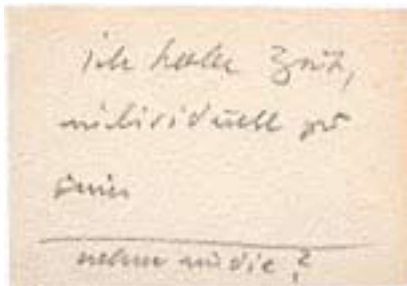 ich habe Zeit,
individuell zu
sein
nehme mir die ?